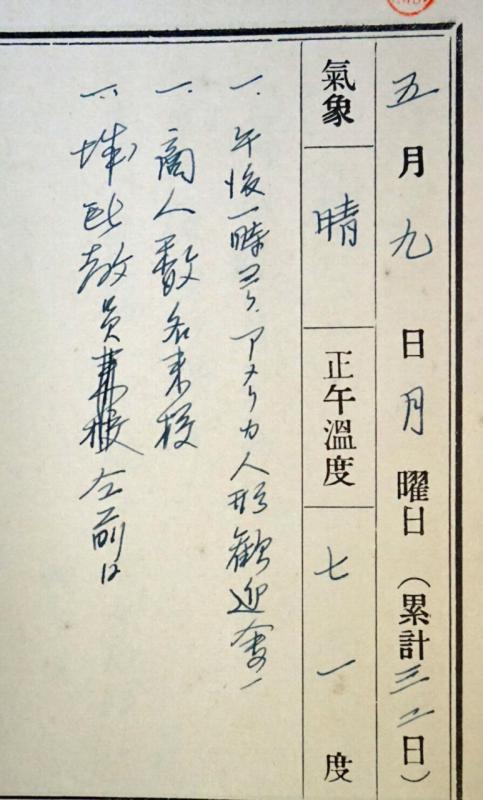 五月九日月曜日(累計三二日)
氣象 晴 正午溫度 七一度
一、午後一時ヨリ、アメリカ人形歡迎會
一、商人數名来校
一、教員 午前